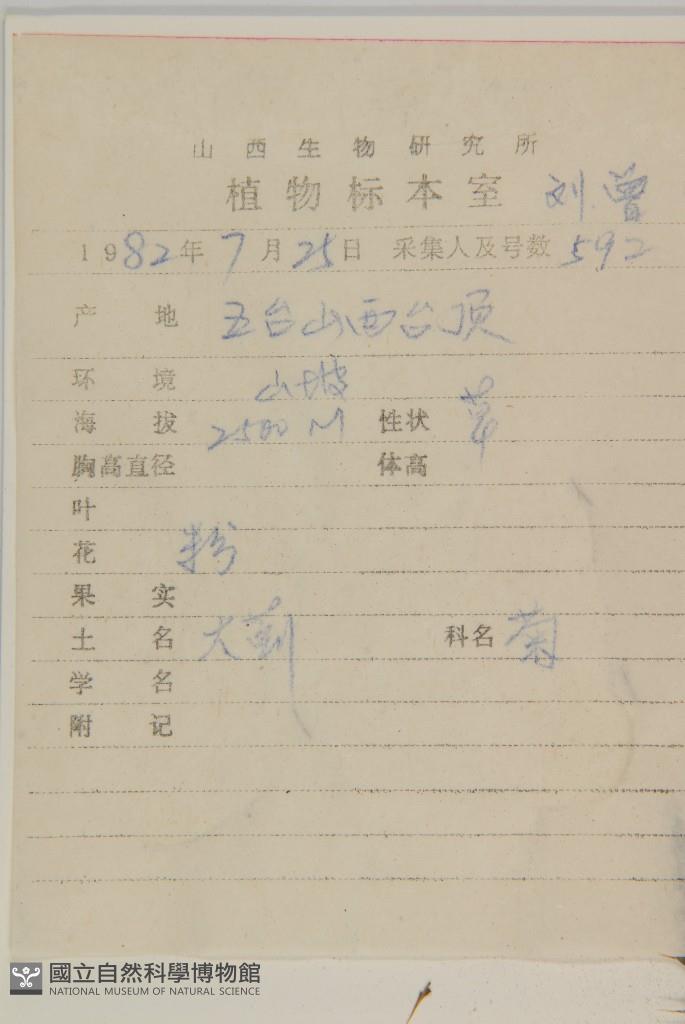 山西生物研究所
植物标本室 刘.曾
1982年7月25日 采集人及号数 592
产地 五台山西台顶
环境 山坡
海拔 2500M 性状 草
胸高直径 体高
叶
花 粉
果实
土名 大蓟 科名 菊
学名
附记
國立自然科學博物館
NATIONAL MUSEUM OF NATURAL SCIENCE